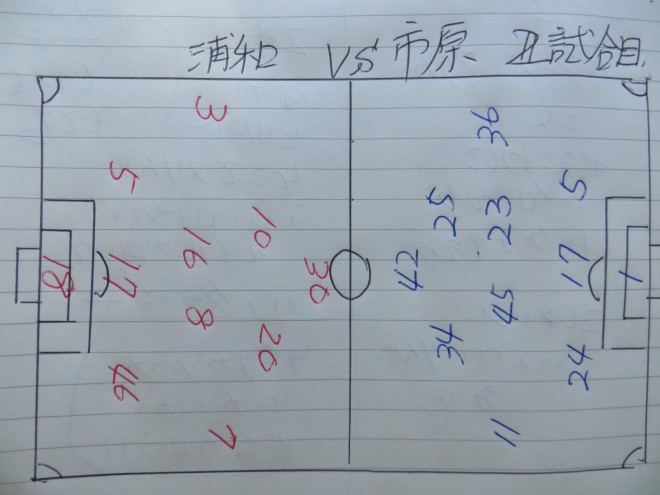 浦和 VS 市原 正試合目
3
36
5
5
10
25
23
16
17
42
17
1
18
30
8
45
20
34
46
24
7
11